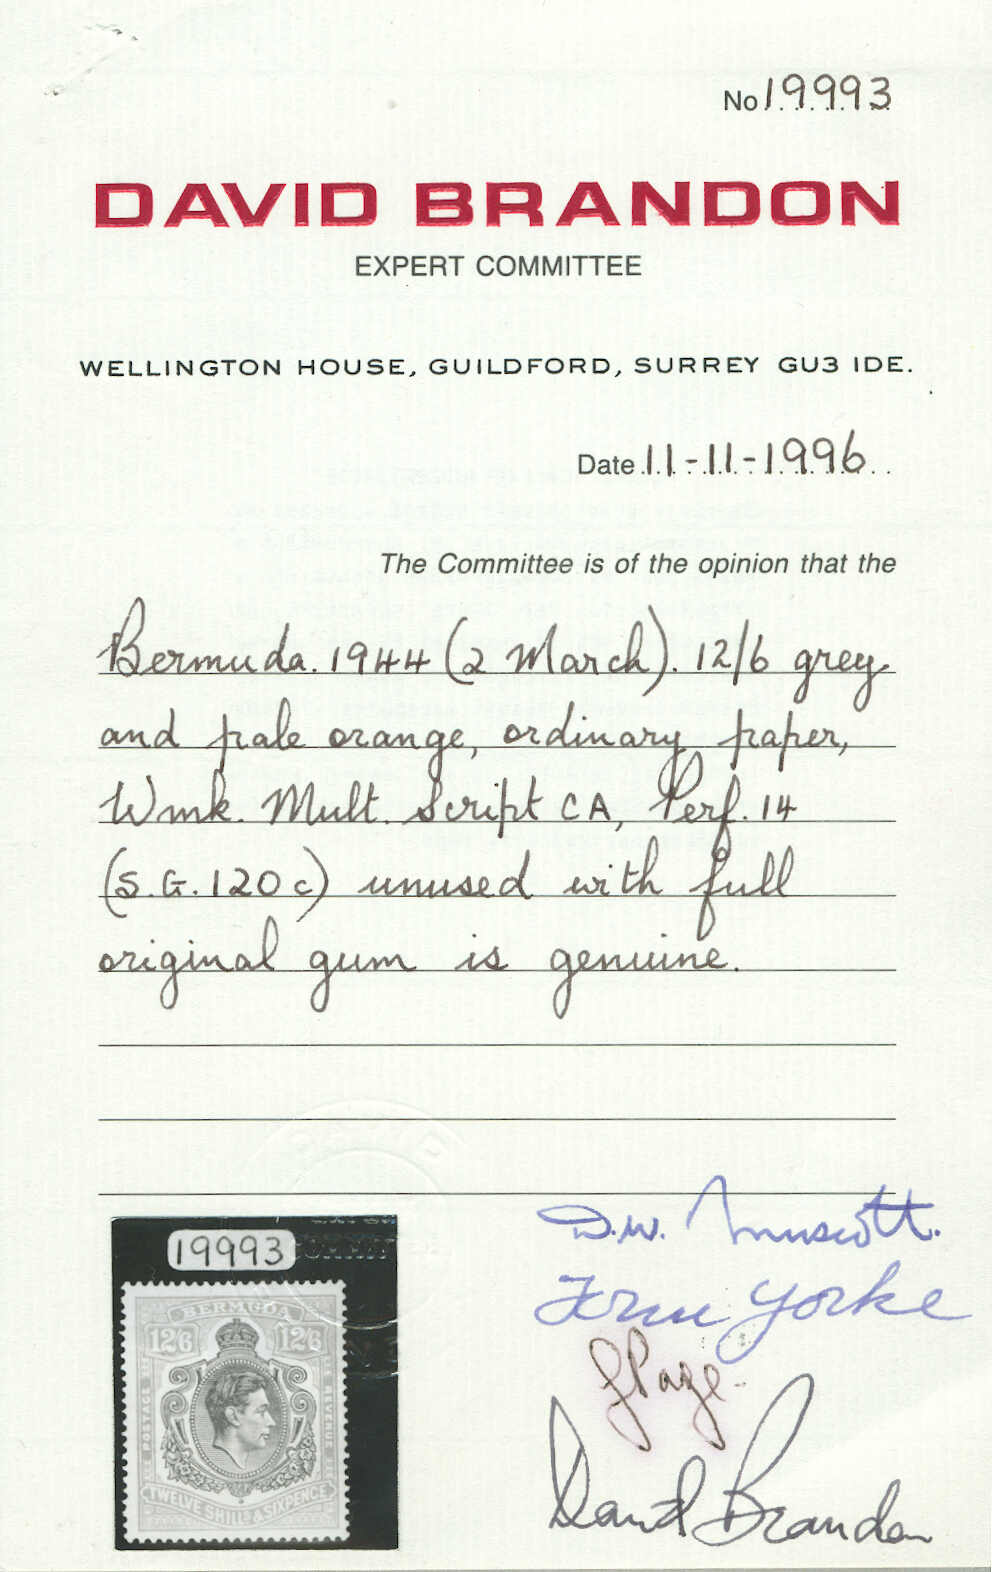 No 19993
DAVID BRANDON
EXPERT COMMITTEE
WELLINGTON HOUSE, GUILDFORD, SURREY GU3 1DE.
Date 11-11-1996
The Committee is of the opinion that the
Bermuda. 1944 (2 March). 12/6 grey
and pale orange, ordinary paper,
Wmk. Mult. Script CA, Perf. 14
(S.G. 120c) unused with full
original gum is genuine.
19993
BERMUDA
12/6 12/6
POSTAGE REVENUE
TWELVE SHILLS & SIXPENCE
D.W. Muscott.
Yorke
Page
David Brandon